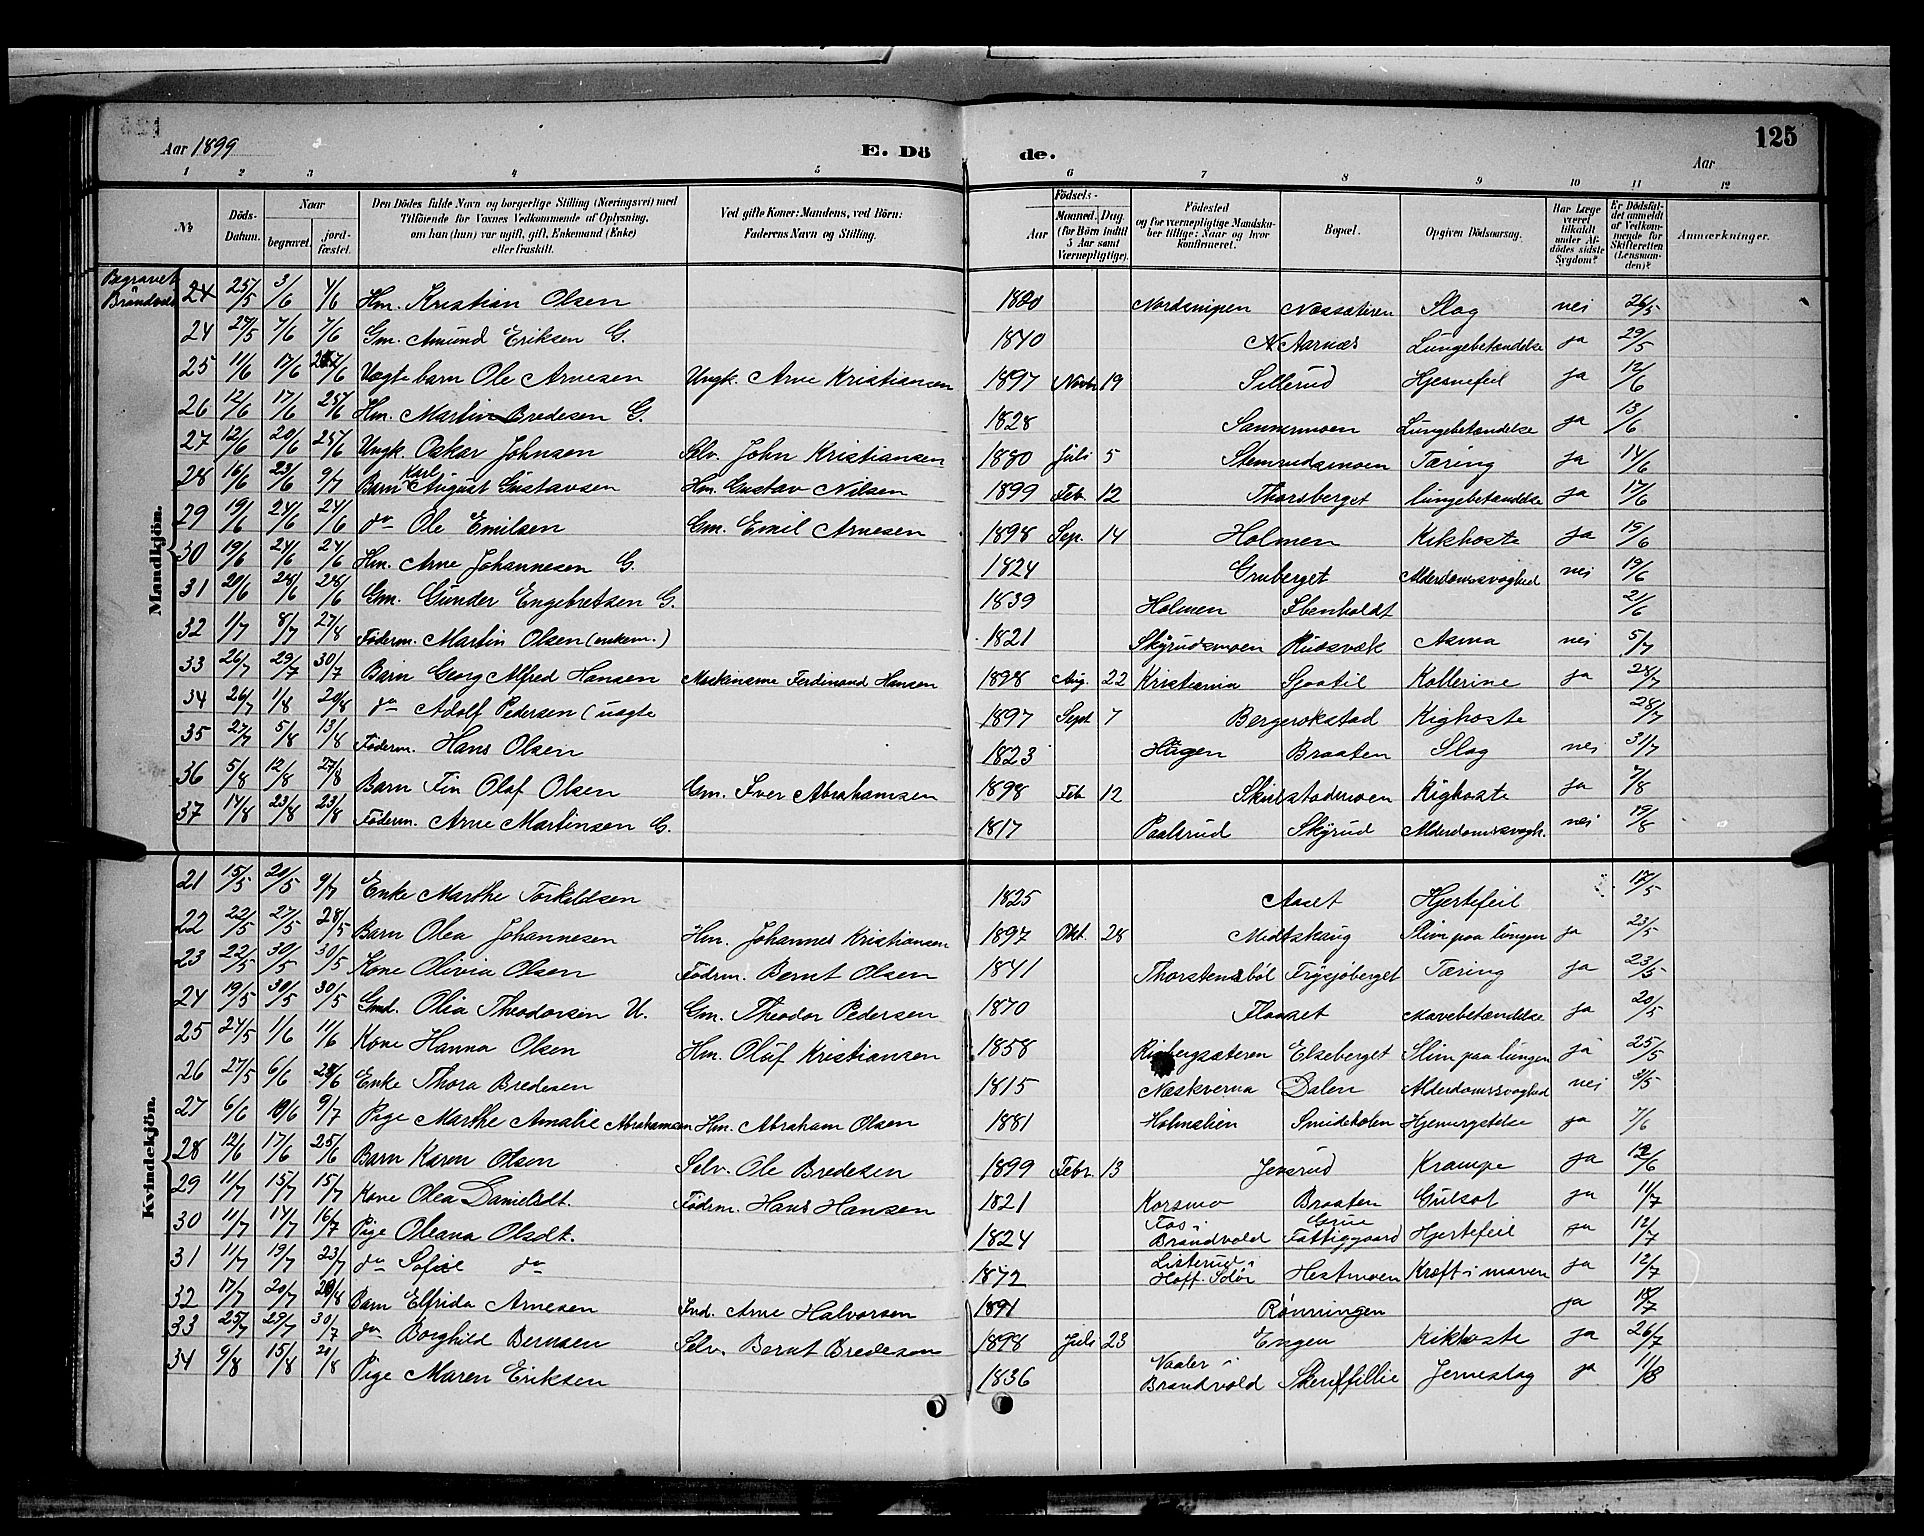 125
Aar 1899
E. Dö de.
Aar
1 2 3 4 5 6 7 8 9 10 11 12
No Döds-Datum. Naar begravet. jordfæstet. Den Dödes fulde Navn og borgerlige Stilling (Næringsvei) med Tilföiende for Voxnes Vedkommende af Oplysning, om han (hun) var ugift, gift, Enkemand (Enke) eller fraskilt. Ved gifte Koner: Mandens, ved Börn: Faderens Navn og Stilling. Födsels- Aar Maaned. Dag. (for Börn indtil 5 Aar samt Værnepligtige). Födested og for værnepligtige Mandskaber tillige: Naar og hvor konfirmeret. Bopæl. Opgiven Dödsaarsag. Har Læge været tilkaldt under Afdödes sidste Sygdom? Er Dödsfaldet anmeldt af Vedkommende for Skifteretten (Lensmanden)? Anmærkninger.
Mandkjön.
Begravet Brandvold 24 25/5 3/6 4/6 Hm. Kristian Olsen 1820 Nordsnipen Næssæteren Slag nei 26/5
24 27/5 7/6 7/6 Gm. Amund Eriksen G. 1840 N Aarnæs Lungebetændelse ja 29/5
25 11/6 17/6 Uægte barn Ole Arnesen Ungk. Arne Kristiansen 1897 Novbr 19 Sillerud Hjernefeil ja 12/6
26 12/6 17/6 25/6 Hm. Martin Bredesen G. 1828 Sannermoen Lungebetændelse ja 13/6
27 12/6 20/6 25/6 Ungk. Oskar Johnsen Selv. John Kristiansen 1880 Juli 5 Stemrudsmoen Tæring ja 14/6
28 16/6 23/6 9/7 Barn Karl August Gustavsen Hm. Gustav Nilsen 1899 Feb. 12 Thorsberget lungebetændelse ja 17/6
29 19/6 24/6 24/6 do Ole Emilsen Gm. Emil Arnesen 1898 Sep. 14 Holmen Kikhoste ja 19/6
30 19/6 24/6 24/6 Hm. Arne Johannesen G. 1824 Gruberget Alderdomssvaghed nei 19/6
31 20/6 28/6 28/6 Gm. Gunder Engebretsen G. 1839 Holmen Ibenholdt 21/6
32 1/7 8/7 27/8 Föderm. Martin Olsen (enkem.) 1821 Skyrudsmoen Rudsvæk Asma nei 5/7
33 26/7 29/7 30/7 Barn Georg Alfred Hansen Maskinsme Ferdinand Hansen 1898 Aug. 22 Kristiania Sjaatil Kollerine ja 28/7
34 26/7 1/8 20/8 do Adolf Pedersen (uægte 1897 Sept 7 Bergerokstad Kighoste 28/7
35 27/7 5/8 13/8 Föderm. Hans Olsen 1823 Hagen Braaten Slag nei 31/7
36 5/8 12/8 27/8 Barn Fin Olaf Olsen Gm. Iver Abrahamsen 1898 Feb 12 Skulstadmoen Kighoste ja 7/8
37 14/8 23/8 23/8 Föderm. Arne Martinsen G. 1817 Paalsrud Skyrud Alderdomssvagh. nei 19/8
Kvindekjön.
21 15/5 20/5 9/7 Enke Marthe Torkeldsen 1825 Aaset Hjertefeil 17/5
22 22/5 27/5 28/5 Barn Olea Johannesen Hm. Johannes Kristiansen 1897 Okt. 28 Midtskaug Slim paa lungen ja 23/5
23 22/5 30/5 30/5 Kone Olivia Olsen Födrm. Bernt Olsen 1841 Thorstensböl Frysjöberget Tæring ja 23/5
24 19/5 30/5 30/5 Gmd. Olia Theodorsen U. Gm. Theodor Pedersen 1870 Flaaset Mavebetændelse ja 20/5
25 24/5 1/6 11/6 Kone Hanna Olsen Hm. Olaf Kristiansen 1858 Rigbergsæteren Elseberget Slim paa lungen ja 25/5
26 27/5 6/6 28/6 Enke Thora Bredesen 1815 Næskverna Dalen Alderdomssvaghed nei 31/5
27 6/6 10/6 9/7 Pige Marthe Amalie Abrahamsen Hm. Abraham Olsen 1881 Holmslien Smideholen Hjernrystelse ja 7/6
28 12/6 17/6 25/6 Barn Karen Olsen Selv. Ole Bredesen 1899 Febr. 13 Jensrud Krampe ja 12/6
29 11/7 15/7 15/7 Kone Olea Danielsdt. Födrm. Hans Hansen 1821 Korsmo Braaten Gulsot ja 11/7
30 11/7 14/7 16/7 Pige Oleana Olsdt. 1824 Fos i Brandvold Grue Fattiggaard Hjertefeil ja 12/7
31 11/7 19/7 23/7 do Sofie do 1872 Listerud i Hoff Solör Hestmoen Kræft i maven ja 12/7
32 17/7 20/7 20/8 Barn Elfrida Arnesen Ind. Arne Halvorsen 1891 Rönningen ja 18/7
33 25/7 29/7 30/7 do Borghild Berntsen Selv. Bernt Bredesen 1898 Juli 23 Engen Kikhoste ja 26/7
34 9/8 15/8 20/8 Pige Maren Eriksen 1836 Vaaler i Brandvold Skeriffillie Jernestag ja 11/8